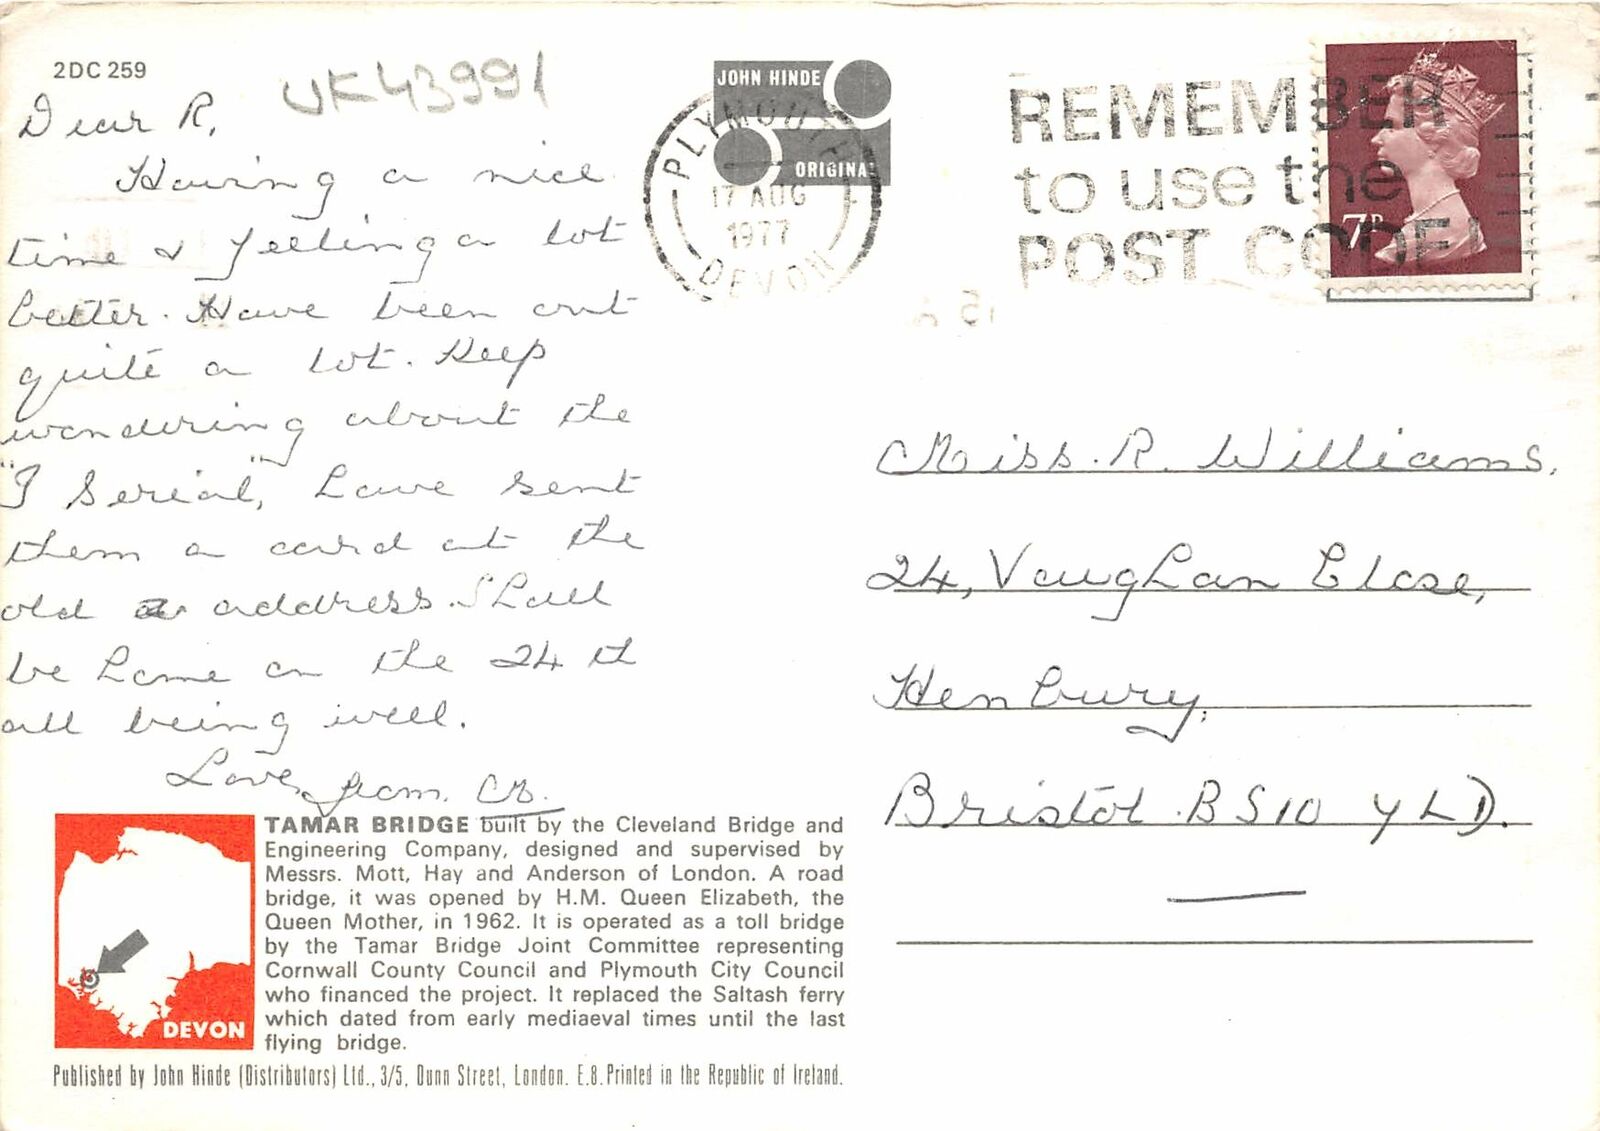 2DC 259
UK43991
Dear R,
Having a nice
time & feeling a lot
better. Have been out
quite a lot. Keep
wondering about the
"J Serial", have sent
them a card at the
old address. Shall
be home on the 24th
all being well.
Love, from
TAMAR BRIDGE built by the Cleveland Bridge and
Engineering Company, designed and supervised by
Messrs. Mott, Hay and Anderson of London. A road
bridge, it was opened by H.M. Queen Elizabeth, the
Queen Mother, in 1962. It is operated as a toll bridge
by the Tamar Bridge Joint Committee representing
Cornwall County Council and Plymouth City Council
who financed the project. It replaced the Saltash ferry
which dated from early mediaeval times until the last
flying bridge.
DEVON
Published by John Hinde (Distributors) Ltd., 3/5, Dunn Street, London. E.8. Printed in the Republic of Ireland.
JOHN HINDE
ORIGINAL
PLYMOUTH
17 AUG
1977
DEVON
REMEMBER
to use the
POST CODE
7P
Miss. R. Williams,
24, Vaughan Close,
Henbury,
Bristol. BS10 7LD.